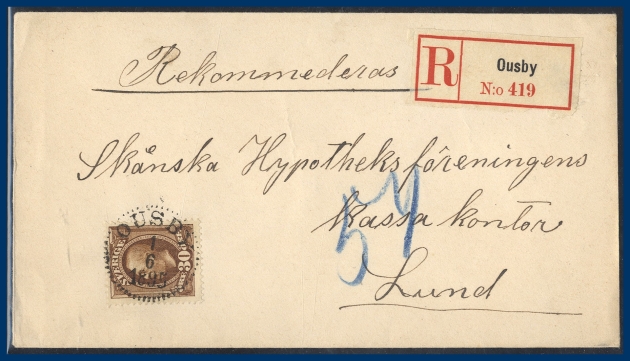 Rekommederas
R
Ousby
N:o 419
Skånska Hypotheksföreningens
Kassa kontor
57
Lund
OUSBY
1
6
SVERIGE
30